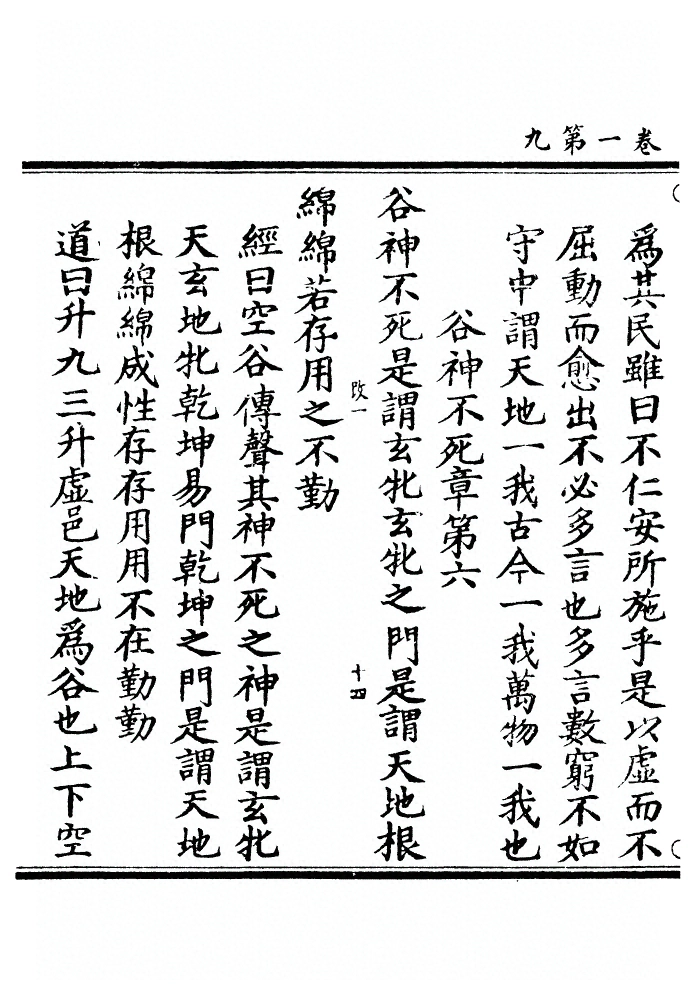 卷一第九
為其民雖曰不仁安所施乎是以虛而不
屈動而愈出不必多言也多言數窮不如
守中謂天地一我古今一我萬物一我也
谷神不死章第六
谷神不死是謂玄牝玄牝之門是謂天地根
改一
十四
綿綿若存用之不勤
經曰空谷傳聲其神不死之神是謂玄牝
天玄地牝乾坤易門乾坤之門是謂天地
根綿綿成性存存用用不在勤勤
道曰升九三升虛邑天地為谷也上下空